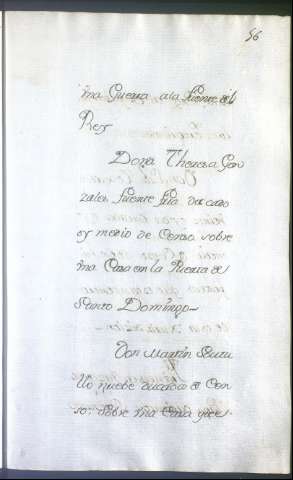 56
vna Guerta a la Fuente del
Rey
Doña Theresa Gon
zales, Fuente
y medio de Censo sobre
vna Casa en la Puerta de
Santo Domingo
Don Martin
llo nuebe ducados de Cen
so: sobre vna Casa q̃ es